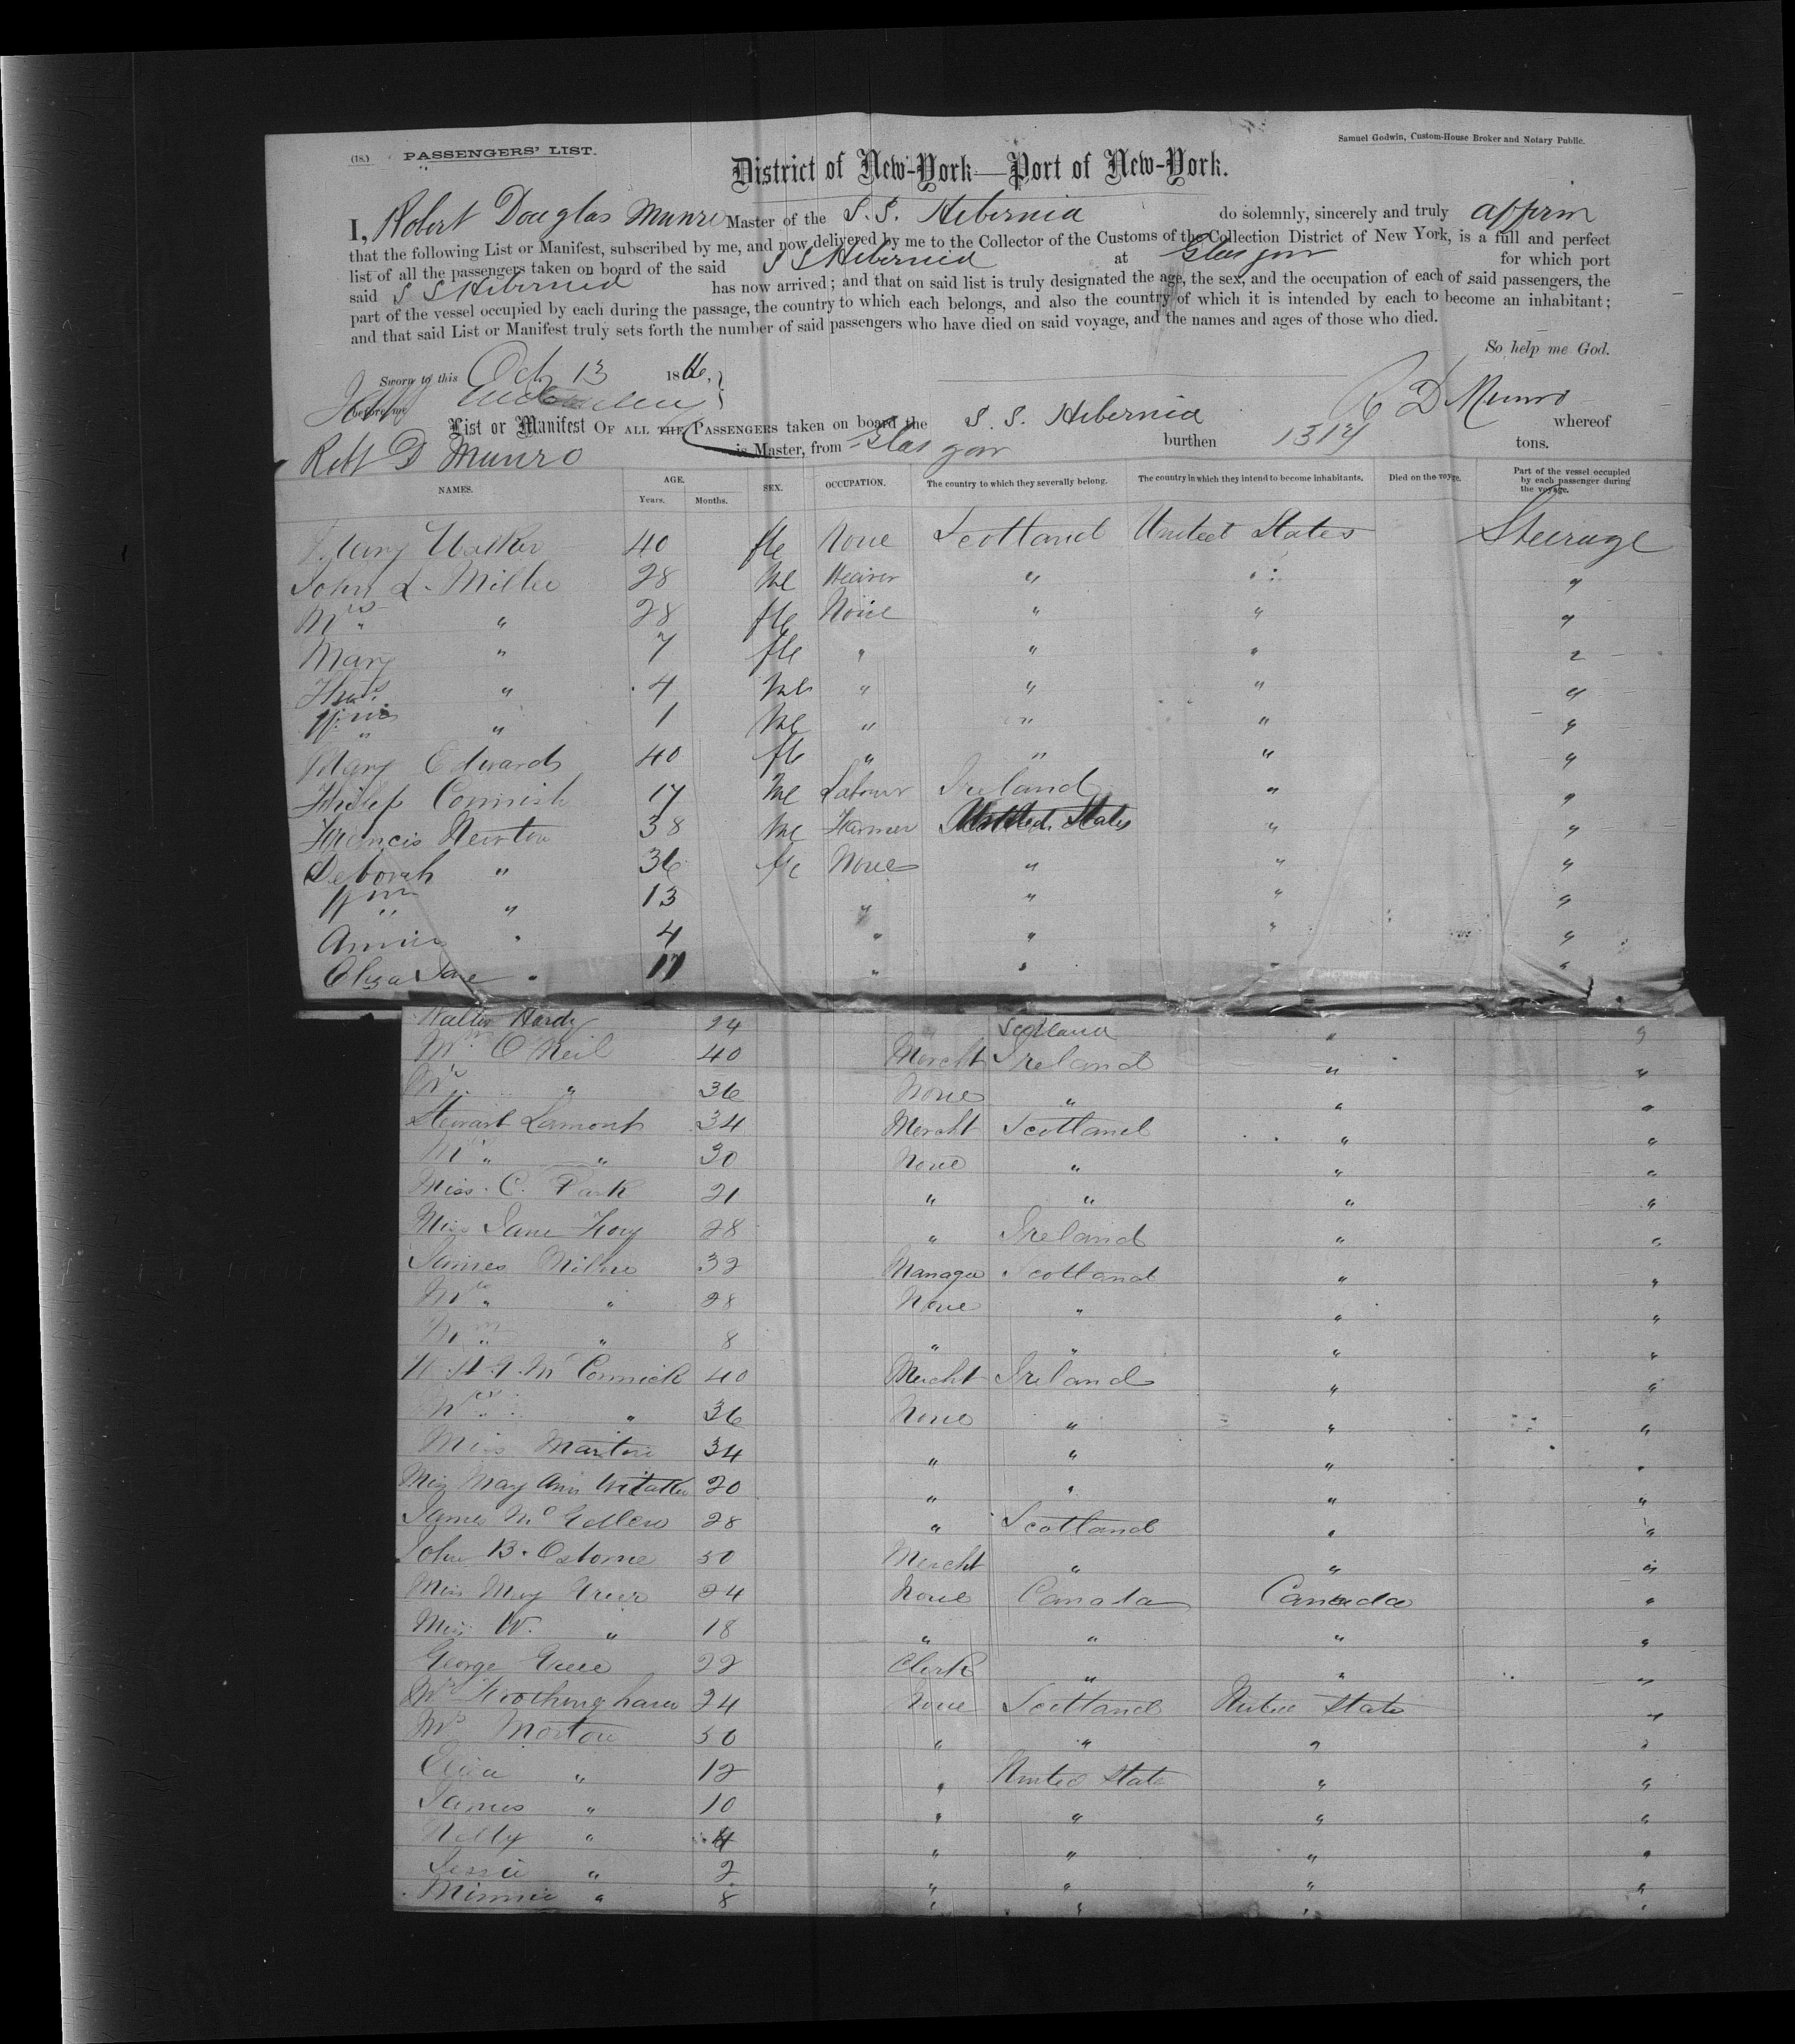 (18.) PASSENGERS' LIST.
Samuel Godwin, Custom-House Broker and Notary Public.
District of New-York—Port of New-York.
I, Robert Douglas Munro Master of the S.S. Hibernia do solemnly, sincerely and truly affirm
that the following List or Manifest, subscribed by me, and now delivered by me to the Collector of the Customs of the Collection District of New York, is a full and perfect
list of all the passengers taken on board of the said S S Hibernia at Glasgow for which port
said S S Hibernia has now arrived; and that on said list is truly designated the age, the sex, and the occupation of each of said passengers, the
part of the vessel occupied by each during the passage, the country to which each belongs, and also the country of which it is intended by each to become an inhabitant;
and that said List or Manifest truly sets forth the number of said passengers who have died on said voyage, and the names and ages of those who died.
So help me God.
Sworn to this Oct 13 1866,
before me
R D Munro
List or Manifest OF ALL THE PASSENGERS taken on board the S. S. Hibernia whereof
Robt D Munro is Master, from Glasgow burthen 1314 tons.
NAMES. AGE. Years. Months. SEX. OCCUPATION. The country to which they severally belong. The country in which they intend to become inhabitants. Died on the voyage. Part of the vessel occupied by each passenger during the voyage.
Mary Walker 40 fle None Scotland United States Steerage
John L. Miller 28 Me Weaver " " "
Mrs " " 28 fle None " " "
Mary " 7 fle " " " "
Thos. " 4 Me " " " "
Wm " " 1 Me " " " "
Mary Edwards 40 fle " " " "
Philip Cornish 17 Me Labour Ireland " "
Francis Newton 38 Me Farmer United States " "
Deborah " 36 fle None " " "
Wm " " 13 " " " "
Annie " 4 " " " "
Eliza Jane " 11 " " " "
Walter Hardy 24 Scotland " "
Wm O'Neil 40 Mercht Ireland " "
Mrs " 36 None " " "
Stewart Lamont 34 Mercht Scotland " "
Mrs " " 30 None " " "
Miss C. Park 21 " " " "
Miss Jane Hoy 28 " Ireland " "
James Milne 32 Manager Scotland " "
Mrs " " 28 None " " "
Wm " " 8 " " " "
McCormick 40 Mercht Ireland " "
Mrs " " 36 None " " "
Miss Martin 34 " " " "
Miss Mary Ann 20 " " " "
James 28 " Scotland " "
John B. Osborne 50 Mercht " " "
Miss Mary Greer 24 None Canada Canada "
Miss W. " 18 " " " "
George Greer 22 Clerk " " "
Mrs Frothingham 24 None Scotland United States "
Mrs Morton 30 " " " "
Eliza " 12 " United States " "
James " 10 " " " "
Nelly " 4 " " " "
Jessie " 2 " " " "
Minnie " 8 " " " "